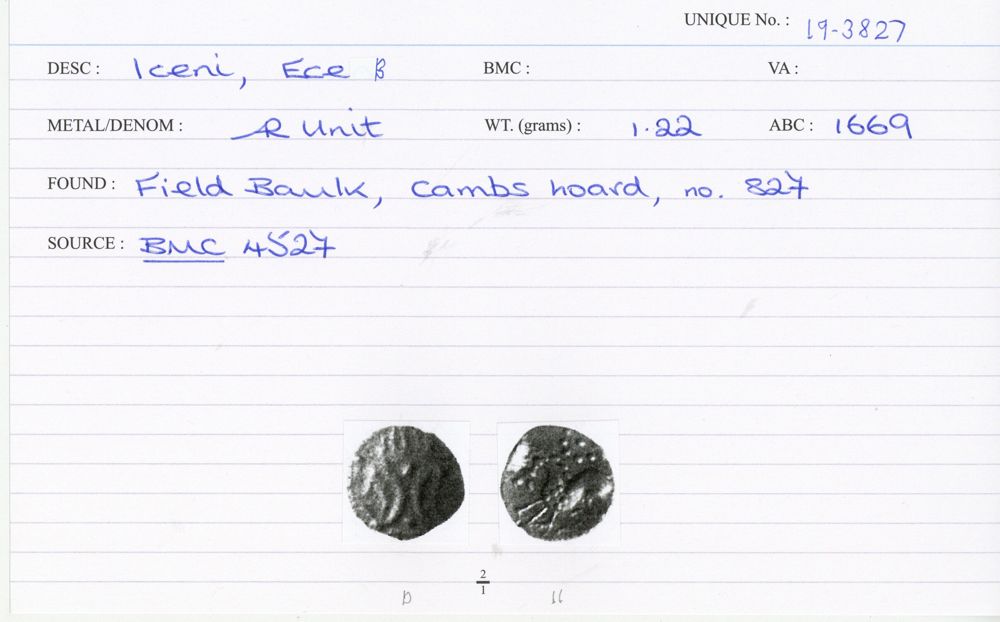 UNIQUE No. : 19-3827
DESC : Iceni, Ece B BMC : VA :
METAL/DENOM : Æ Unit WT. (grams) : 1.22 ABC : 1669
FOUND : Field Baulk, Cambs hoard, no. 827
SOURCE : BMC 4527
2
1